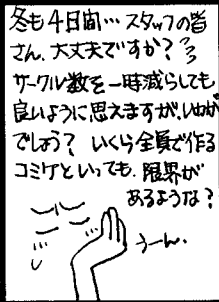 冬も4日間…スタッフの皆
さん、大丈夫ですか？
サークル数を一時減らしても、
良いように思えますが、いかが
でしょう？いくら全員で作る
コミケといっても、限界が
あるような？
うーん、